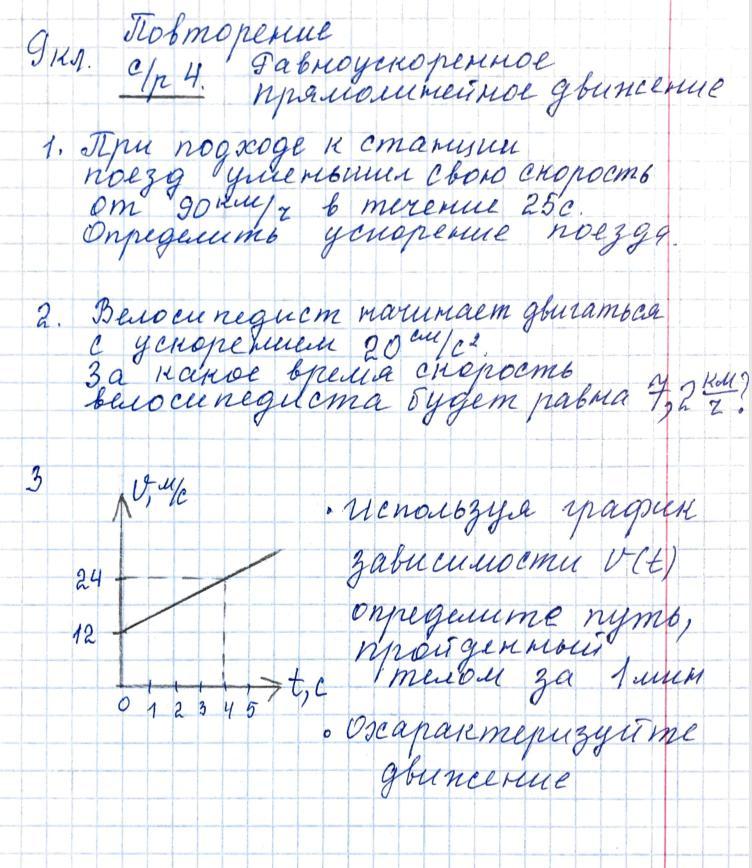 Повторение
9кл. с/р 4. Равноускоренное
прямолинейное движение
1. При подходе к станции
поезд уменьшил свою скорость
от 90 км/ч в течение 25с.
Определить ускорение поезда.
2. Велосипедист начинает двигаться
с ускорением 20 см/с².
За какое время скорость
велосипедиста будет равна 7,2 км/ч?
3
V, м/с
24
12
0 1 2 3 4 5
t, с
• Используя график
зависимости V(t)
определите путь,
пройденный
телом за 1 мин
• Охарактеризуйте
движение